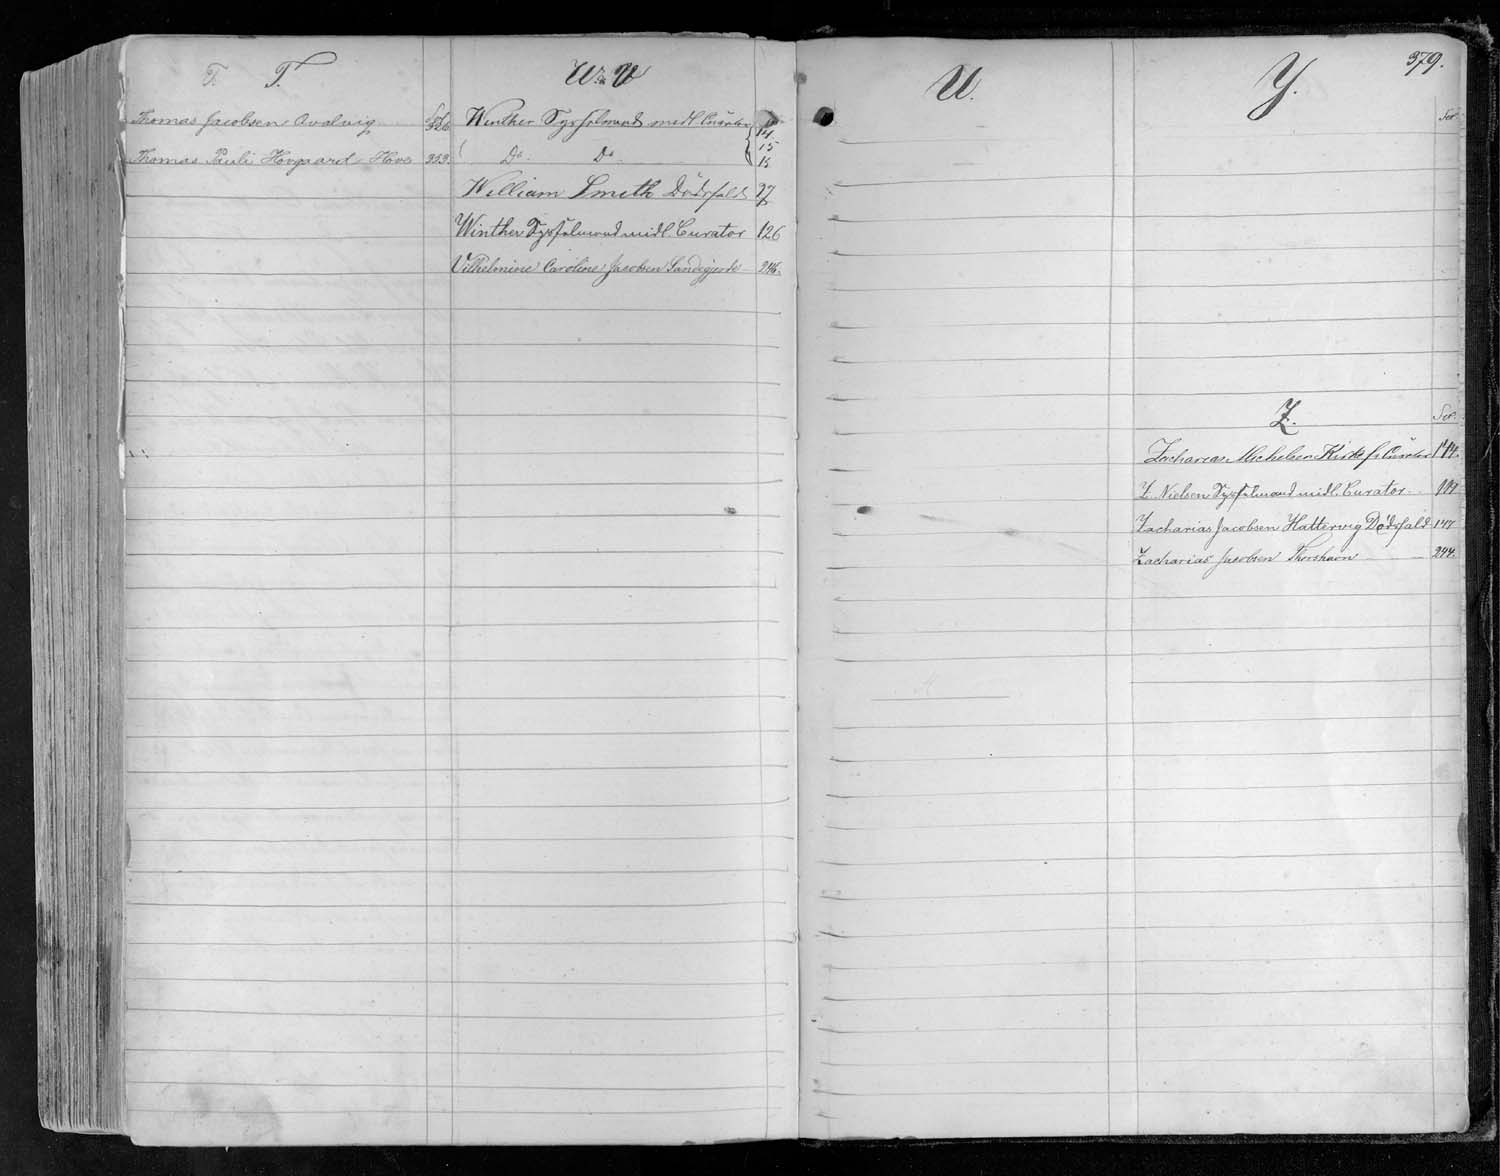 T. T.
Thomas Jacobsen Qvalvig 326.
Thomas Pauli Hovgaard Hove 353.
W & V
Winther Sysselmand midl. Curator 14
Do. Do. 15
William Smith Dödsfald 27
Winther Sysselmand midl. Curator 126
Vilhelmine Caroline Jacobsen Sandegjerde 246.
U.
379.
Y.
Fol
Z.
Fol.
Zacharias Michelsen Kirke f. Curator 114.
Z. Nielsen Sysselmand midl. Curator
Zacharias Jacobsen Hattervig Dødsfald 147
Zacharias Jacobsen Thorshavn 244.